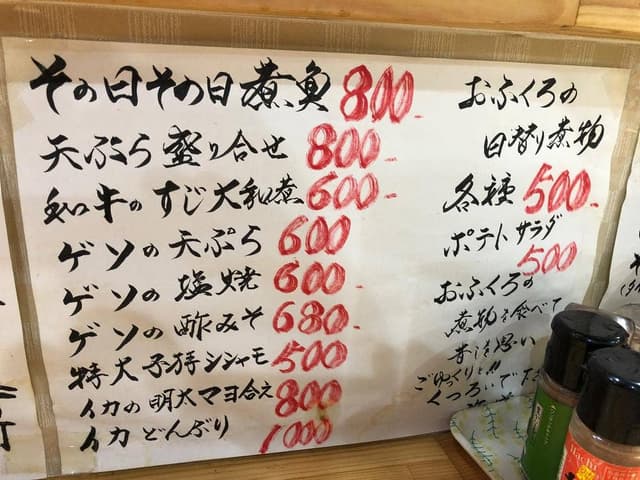 その日その日煮魚 800-
天ぷら盛り合せ 800-
和牛のすじ大和煮 600-
ゲソの天ぷら 600
ゲソの塩焼 600-
ゲソの酢みそ 680-
特大子持シシャモ 500
イカの明太マヨ合え 800
イカどんぶり 1000
おふくろの
日替り煮物
各種 500-
ポテトサラダ
500
おふくろの
煮物を食べて
昔を思い
ごゆっくりと!!
くつろいで下さ